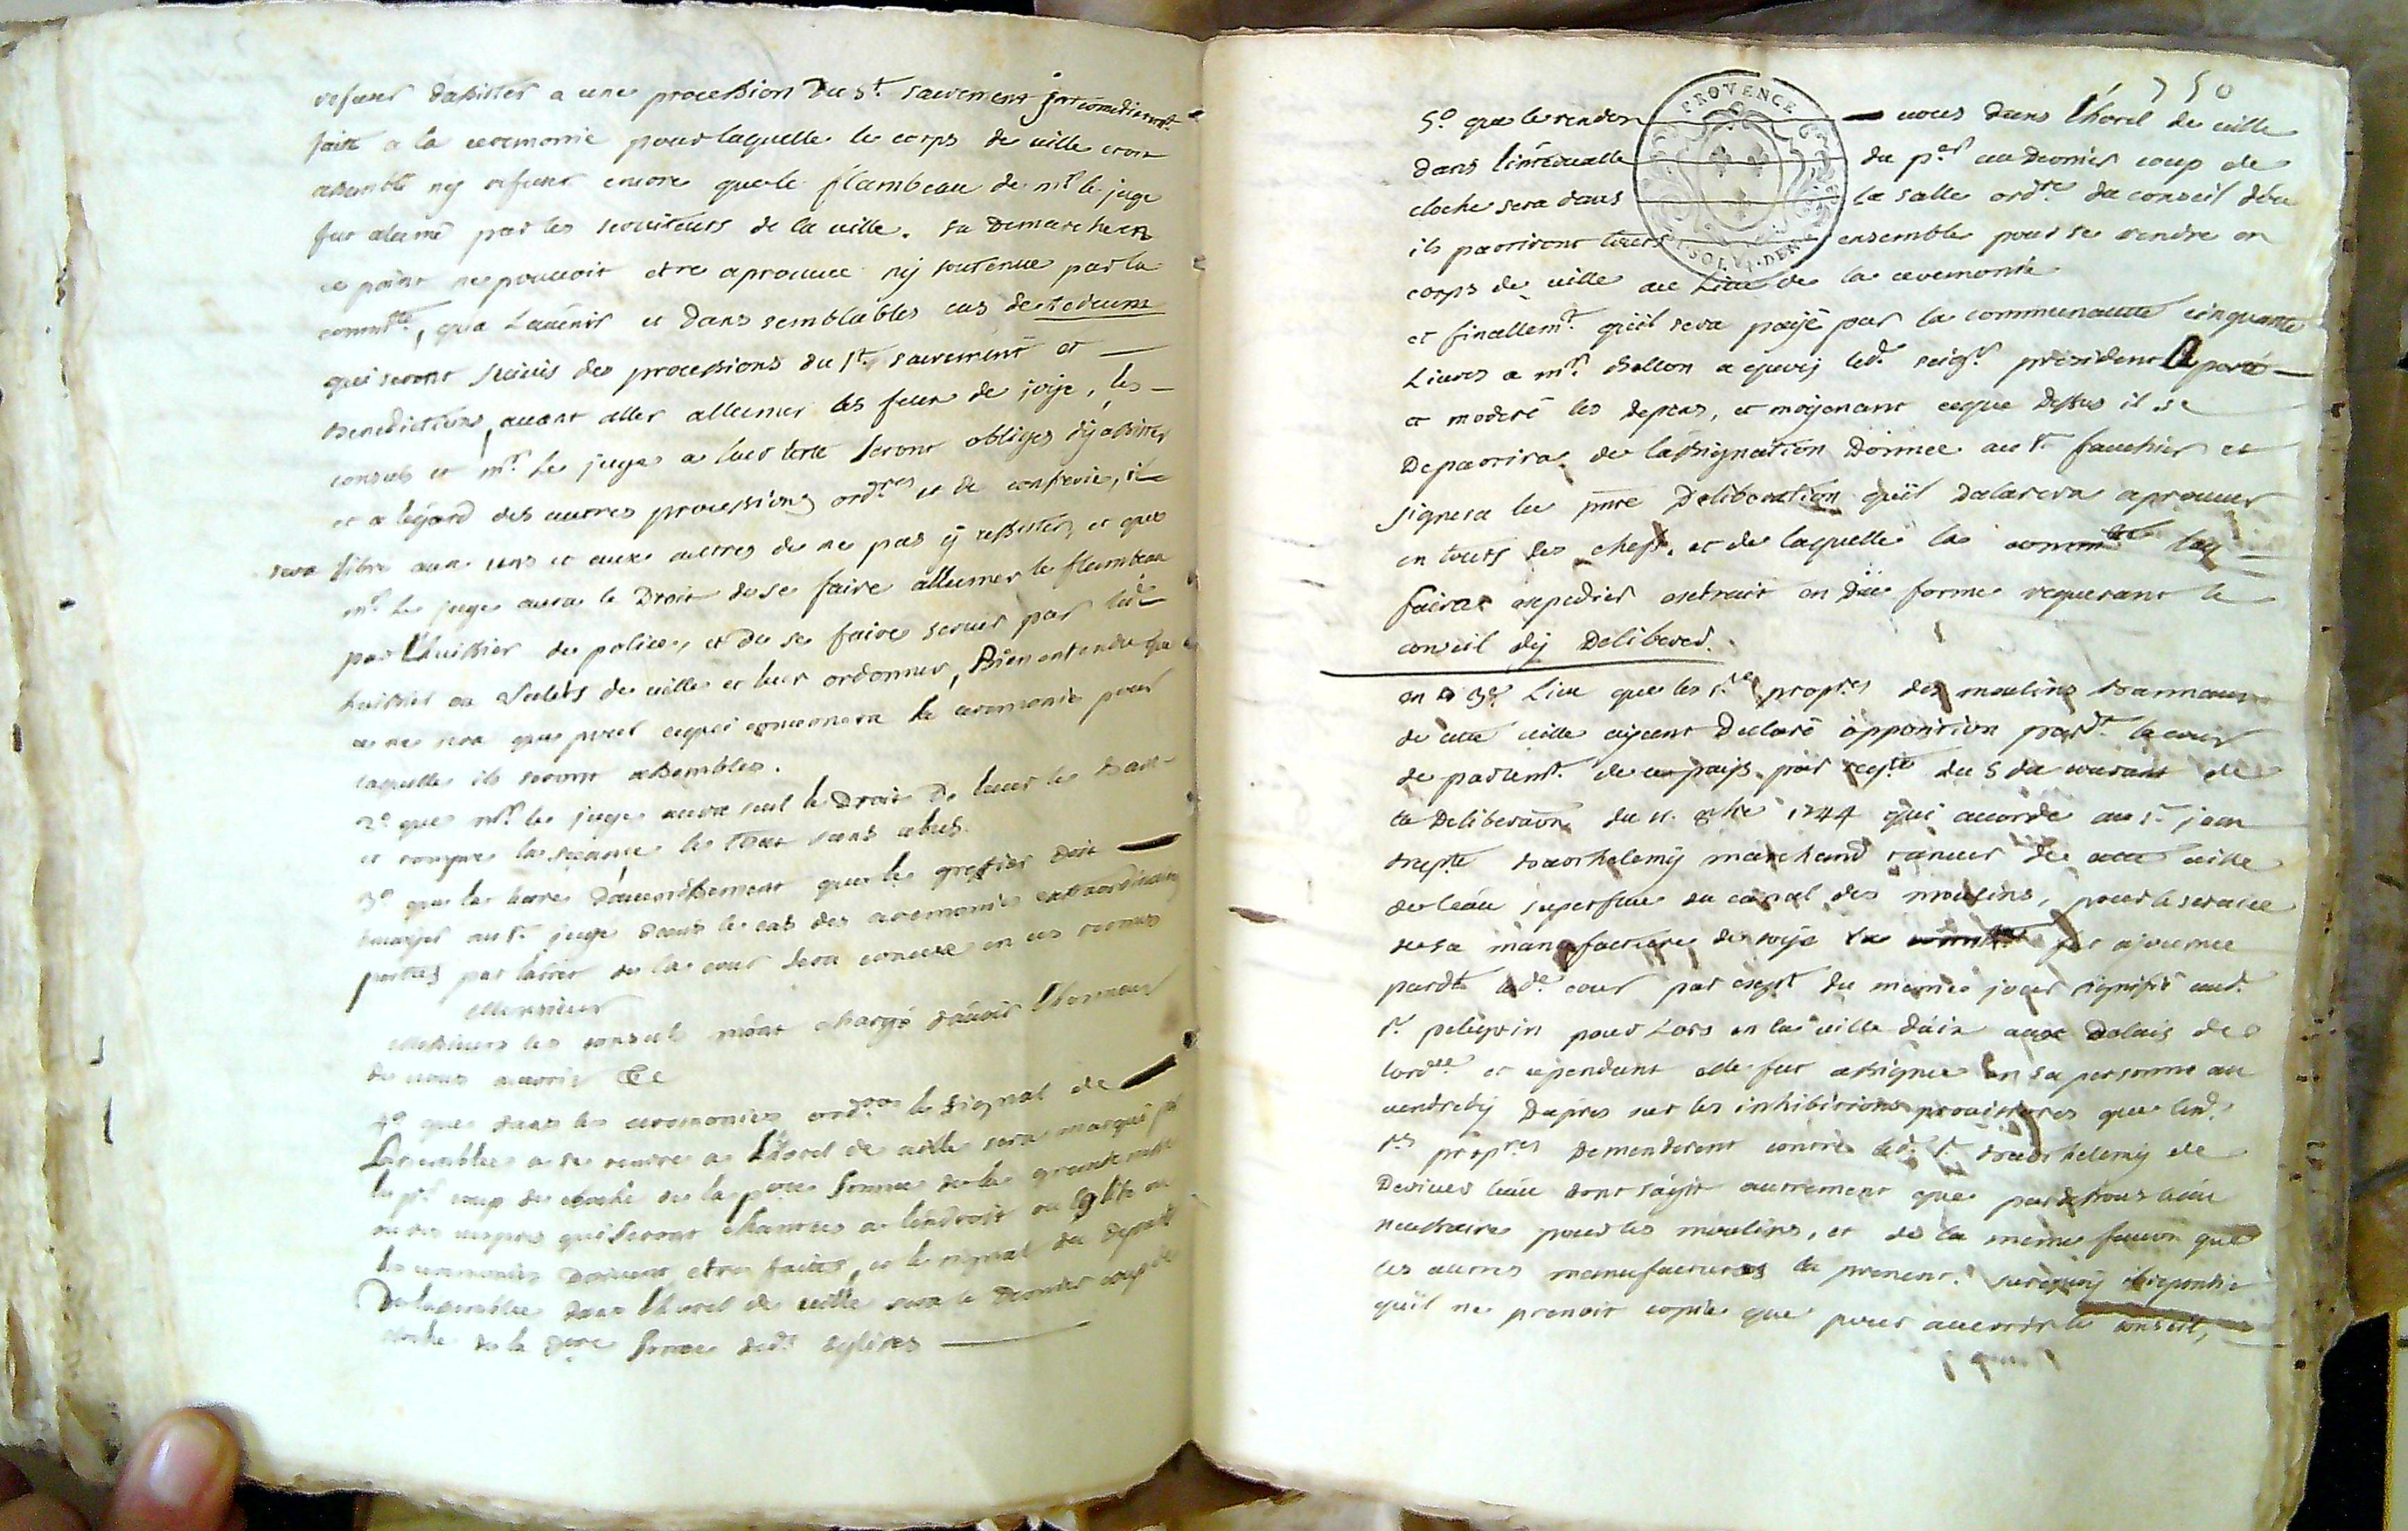 refuser dassister a une procession du st. sacrement
faitte a la ceremonie pour laquelle le corps de ville etoit
assemblé ny refuser encore que le flambeau de mr. le juge
fut alumé par les serviteurs de la ville. sa demarche en
ce point ne pouvoit etre aprouvee ny soutenue par la
commte, qua Lavenir et dans semblables cas de tedeums
qui seront suivis des processions du st. sacrement et
benedictions, avant aller allumer les feux de joye, les
consuls et mr. le juge a leur tette seront obligés dÿ assister
et a légard des autres processions ordres et de confrerie, il
sera libre aux uns et aux autres de ne pas ÿ assister, et que
mr. le juge aura le Droit de se faire allumer le flambeau
par lhuissier de police, et de se faire servir par led.
huissier ou valets de ville et leur ordonner, Bien entendu que
ce ne sera que pour cequi concernera la ceremonie pour
laquelle ils seront assembles.
2o. que mr. le juge aura seul le Droit De
et rompre la seance le tout sans abus.
3o que la lettre davertissement que le greffier doit
envoyer au sr. juge dans le cas des ceremonies extraordinaires
portées par larret de la cour sera concüe en ces termes
Monsieur
Messieurs les consuls mónt chargé davoir lhonneur
de vous avertir &c
4o que dans les ceremonies ordres le signal de
Lassemblée a se rendre a Lhotel de ville sera marqué par
le pr. coup de cloche de la pere sonnee de la grande messe
ou des vespres qui seront chantées a lendroit ou léglise ou
les ceremonies doivent etre faittes, et le signal du depart
De lassemblee dans lhotel de ville sera le Dernier coup de
cloche de la dere sonnee desd. eglises
750
PROVENCE
5o. que le rendes vous dans lhotel de ville
dans lintervalle du per au dernier coup de
cloche sera dans la salle ordre du conseil dóu
ils partiront touts ensemble pour se rendre en
corps de ville au Lieu de la ceremonie
et finallemt. quil sera payé par la communautté cinquante
Livres a mr. Ballon a quoy led. seigr. president
et moderé les depens, et moyenant ceque dessus il se
Departira de lassignation Donnée au sr. fauchier et
signera la pnte Deliberation quil declarera aprouver
en touts ses chefs, et de laquelle la
faira expedier extrait en düe forme requerant le
conseil dÿ Deliberer.
en 3e. Lieu que les srs propres des moulins bannaux
de cette ville ayant Declaré opposition pardt. la cour
de parlemt. de ce pays par reqte du 5 du courant de
la Deliberaon du 11. 8bre 1744 qui accorde au sr. jean
bapte barthelemy marchand taneur de cette ville
de léau superflue du canal des moulins, pour le service
de sa manufacture de soye la commté fut ajournee
pardt lade. cour par explt du meme jour signifié aud.
sr. pelegrin pour Lors en la ville daix aux delais de
lordce. et cependant elle fut assignée en sa personne au
vendredy Dapres sur les inhibitions provisoires que lesd.
srs propres demenderent contre led. sr. barthelemy de
Deriver leau dont sagit autrement que
necessaire pour les moulins, et de la meme facon que
les autres manufactures la prenent. surquoy il repondit
quil ne prenoit copie que pour avertir le conseil,